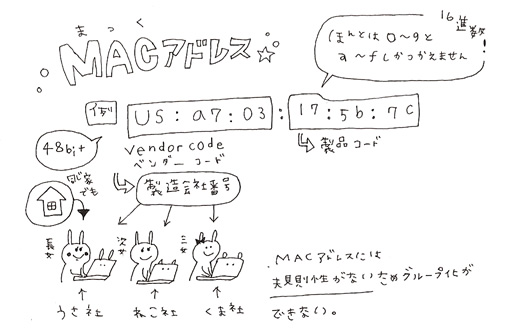 まっく
MACアドレス☆
16進数!
ほんとは0〜9と
a〜fしかつかえません
例 US:a7:03:17:5b:7c
48bit
vendorcode
ベンダーコード
製品コード
同じ家でも
製造会社番号
長女 次女 三女
うさ社 ねこ社 くま社
MACアドレスには
規則性がないためグループ化が
できない。